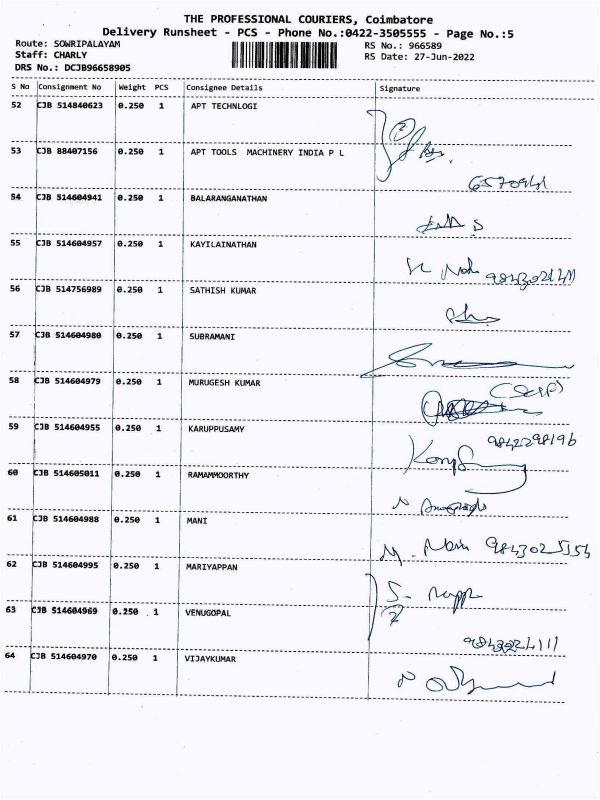 THE PROFESSIONAL COURIERS, Coimbatore
Delivery Runsheet - PCS - Phone No.:0422-3505555 - Page No.:5
Route: SOWRIPALAYAM
Staff: CHARLY
DRS No.: DCJB96658905
RS No.: 966589
RS Date: 27-Jun-2022
S No Consignment No Weight PCS Consignee Details Signature
52 CJB 514840623 0.250 1 APT TECHNLOGI
2
53 CJB 88407156 0.250 1 APT TOOLS MACHINERY INDIA P L
54 CJB 514604941 0.250 1 BALARANGANATHAN
55 CJB 514604957 0.250 1 KAYILAINATHAN
56 CJB 514756989 0.250 1 SATHISH KUMAR
57 CJB 514604980 0.250 1 SUBRAMANI
58 CJB 514604979 0.250 1 MURUGESH KUMAR
59 CJB 514604955 0.250 1 KARUPPUSAMY
9842298196
60 CJB 514605011 0.250 1 RAMAMMOORTHY
61 CJB 514604988 0.250 1 MANI
62 CJB 514604995 0.250 1 MARIYAPPAN
63 CJB 514604969 0.250 1 VENUGOPAL
64 CJB 514604970 0.250 1 VIJAYKUMAR